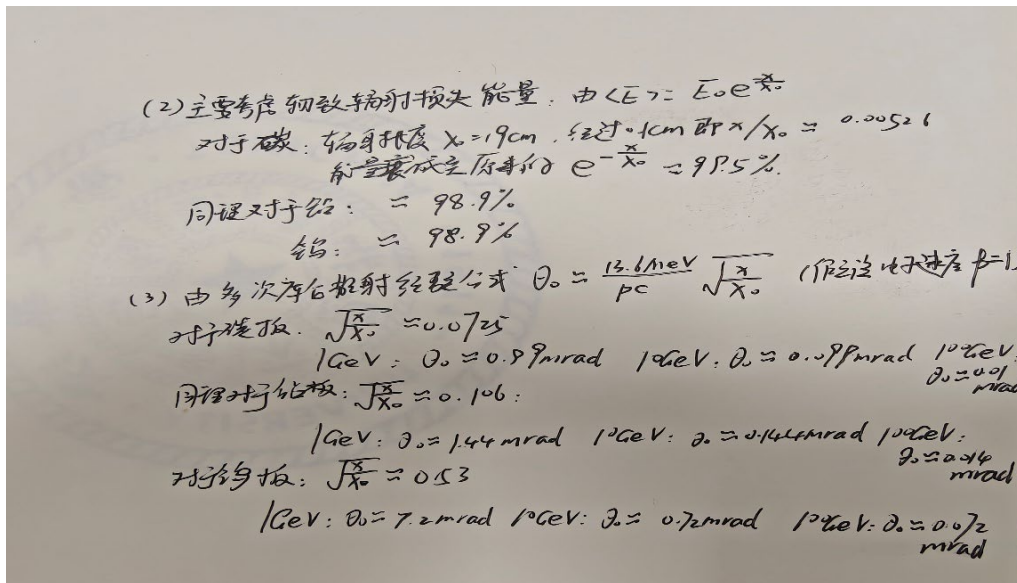 (2)主要考虑韧致辐射损失能量. 由<E>= E₀e^{-x/X₀}
对于碳: 辐射长度 X₀=19cm, 经过0.1cm 即 x/X₀ ≈ 0.00526
能量衰减至原来的 e^{-x/X₀} ≈ 99.5%.
同理对于铅: ≈ 98.9%
钨: ≈ 98.9%
(3) 由多次库仑散射经验公式 θ₀ ≈ 13.6MeV/pc √(x/X₀) (假设电子速度 β=1)
对于碳板. √(x/X₀) ≈0.0725
1GeV: θ₀≈0.99mrad 10GeV: θ₀≈0.099mrad 100GeV: θ₀≈0.01 mrad
同理对于铝板: √(x/X₀) ≈ 0.106:
1GeV: θ₀≈1.44mrad 10GeV: θ₀≈0.144mrad 100GeV: θ₀≈0.014 mrad
对于钨板: √(x/X₀) ≈ 0.53
1GeV: θ₀≈7.2mrad 10GeV: θ₀≈ 0.72mrad 100GeV: θ₀≈0.072 mrad